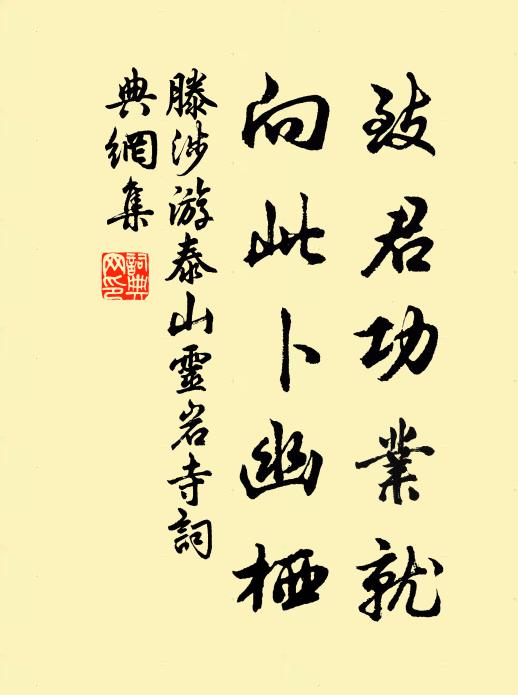 致君功業就
向此卜幽栖
滕涉游泰山靈岩寺詞
典網集
詞典
网印